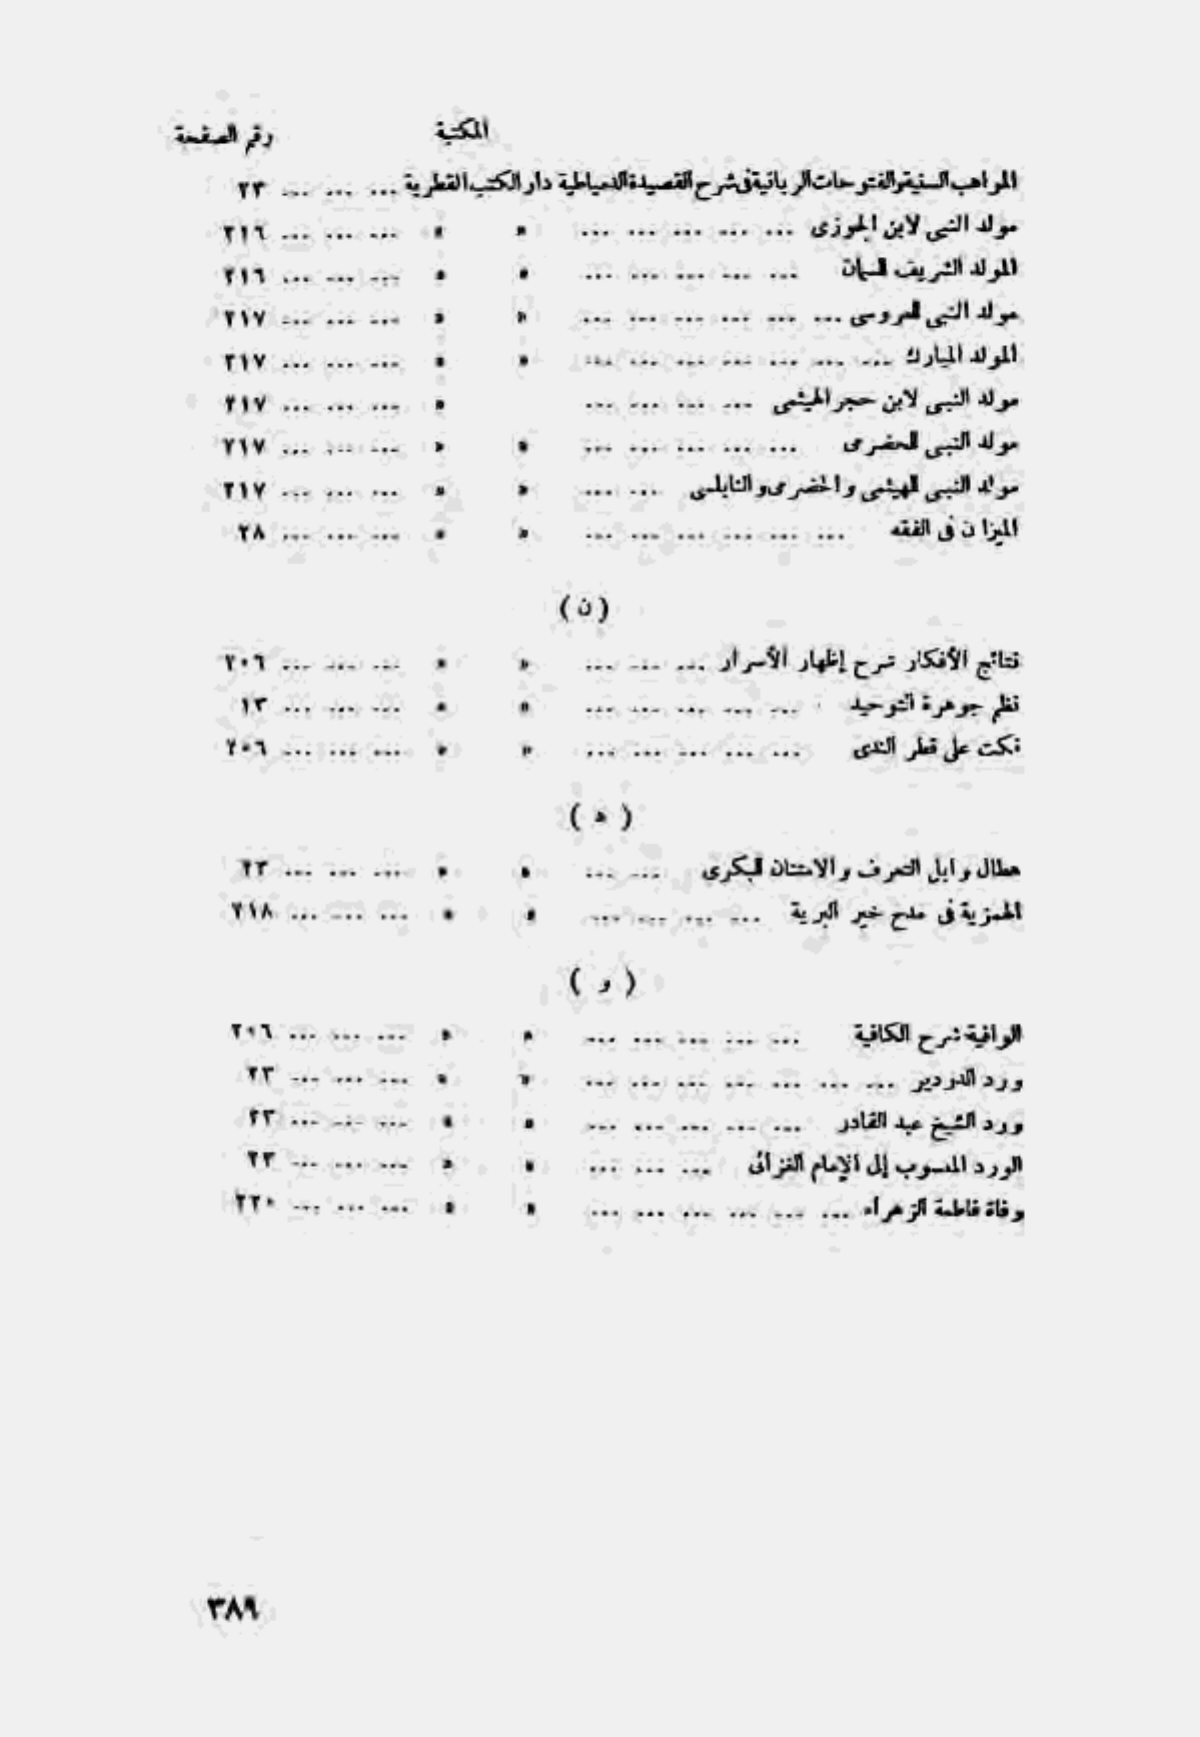 المكتبة رقم الصفحة
المواهب السنية والفتوحات الربانية فى شرح القصيدة الدمياطية دار الكتب القطرية ... ... ... ٢٣
مولد النبى لابن الجوزى ... ... ... ... ... » » ... ... ... ٢١٦
المولد الشريف للسمان ... ... ... ... ... » » ... ... ... ٢١٦
مولد النبى للعروسى ... ... ... ... ... ... » » ... ... ... ٢١٧
المولد المبارك ... ... ... ... ... ... ... » » ... ... ... ٢١٧
مولد النبى لابن حجر الهيثمى ... ... ... ... » ... ... ... ٢١٧
مولد النبى للحضرمى ... ... ... ... ... » » ... ... ... ٢١٧
مولد النبى للهيثمى والحضرمى والنابلسى ... ... » » ... ... ... ٢١٧
الميزان فى الفقه ... ... ... ... ... ... » » ... ... ... ٢٨
( ن )
نتائج الأفكار شرح إظهار الأسرار ... ... ... » » ... ... ... ٢٠٦
نظم جوهرة التوحيد ... ... ... ... ... » » ... ... ... ١٣
نكت على قطر الندى ... ... ... ... ... » » ... ... ... ٢٠٦
( ه )
هطال وابل التعرف والامتنان للبكرى ... ... » » ... ... ... ٢٣
الهمزية فى مدح خير البرية ... ... ... ... » » ... ... ... ٢١٨
( و )
الوافية شرح الكافية ... ... ... ... ... » » ... ... ... ٢٠٦
ورد الدردير ... ... ... ... ... ... ... » » ... ... ... ٢٣
ورد الشيخ عبد القادر ... ... ... ... ... » » ... ... ... ٢٣
الورد المنسوب إلى الإمام الغزالى ... ... ... » » ... ... ... ٢٣
وفاة فاطمة الزهراء ... ... ... ... ... ... » » ... ... ... ٢٢٠
٣٨٩